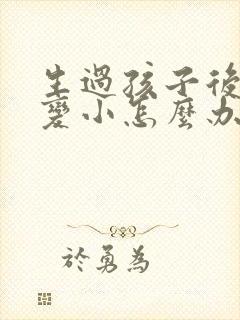 生過孩子後
變小怎麼办
於勇為